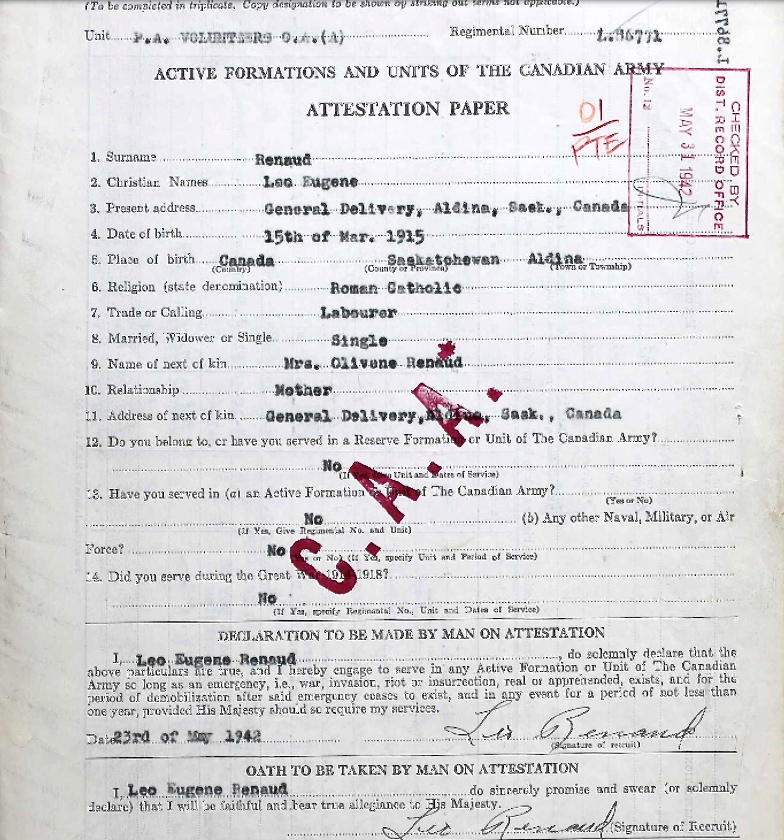 (To be completed in triplicate. Copy designation to be shown by striking out terms not applicable.)
Unit P.A. VOLUNTEERS C.A.(A) Regimental Number L.86771
L.86771
ACTIVE FORMATIONS AND UNITS OF THE CANADIAN ARMY
ATTESTATION PAPER
01
PTE
CHECKED BY
DIST. RECORD OFFICE
MAY 31 1942
No. 12
INITIALS
1. Surname Renaud
2. Christian Names Leo Eugene
3. Present address General Delivery, Aldina, Sask., Canada
4. Date of birth 15th of Mar. 1915
5. Place of birth Canada Saskatchewan Aldina
(Country) (County or Province) (Town or Township)
6. Religion (state denomination) Roman Catholic
7. Trade or Calling Labourer
8. Married, Widower or Single Single
9. Name of next of kin Mrs. Olivene Renaud
10. Relationship Mother
11. Address of next of kin General Delivery, Aldina, Sask., Canada
12. Do you belong to, or have you served in a Reserve Formation or Unit of The Canadian Army?
No
(If Yes, Give Unit and Dates of Service)
13. Have you served in (a) an Active Formation or Unit of The Canadian Army?
(Yes or No)
No (b) Any other Naval, Military, or Air
(If Yes, Give Regimental No. and Unit)
Force? No
(Yes or No) (If Yes, specify Unit and Period of Service)
14. Did you serve during the Great War 1914-1918?
No
(If Yes, specify Regimental No., Unit and Dates of Service)
C.A.A.*
DECLARATION TO BE MADE BY MAN ON ATTESTATION
I, Leo Eugene Renaud, do solemnly declare that the
above particulars are true, and I hereby engage to serve in any Active Formation or Unit of The Canadian
Army so long as an emergency, i.e., war, invasion, riot or insurrection, real or apprehended, exists, and for the
period of demobilization after said emergency ceases to exist, and in any event for a period of not less than
one year, provided His Majesty should so require my services.
Date 23rd of May 1942 Leo Renaud
(Signature of recruit)
OATH TO BE TAKEN BY MAN ON ATTESTATION
I, Leo Eugene Renaud do sincerely promise and swear (or solemnly
declare) that I will be faithful and bear true allegiance to His Majesty.
Leo Renaud (Signature of Recruit)